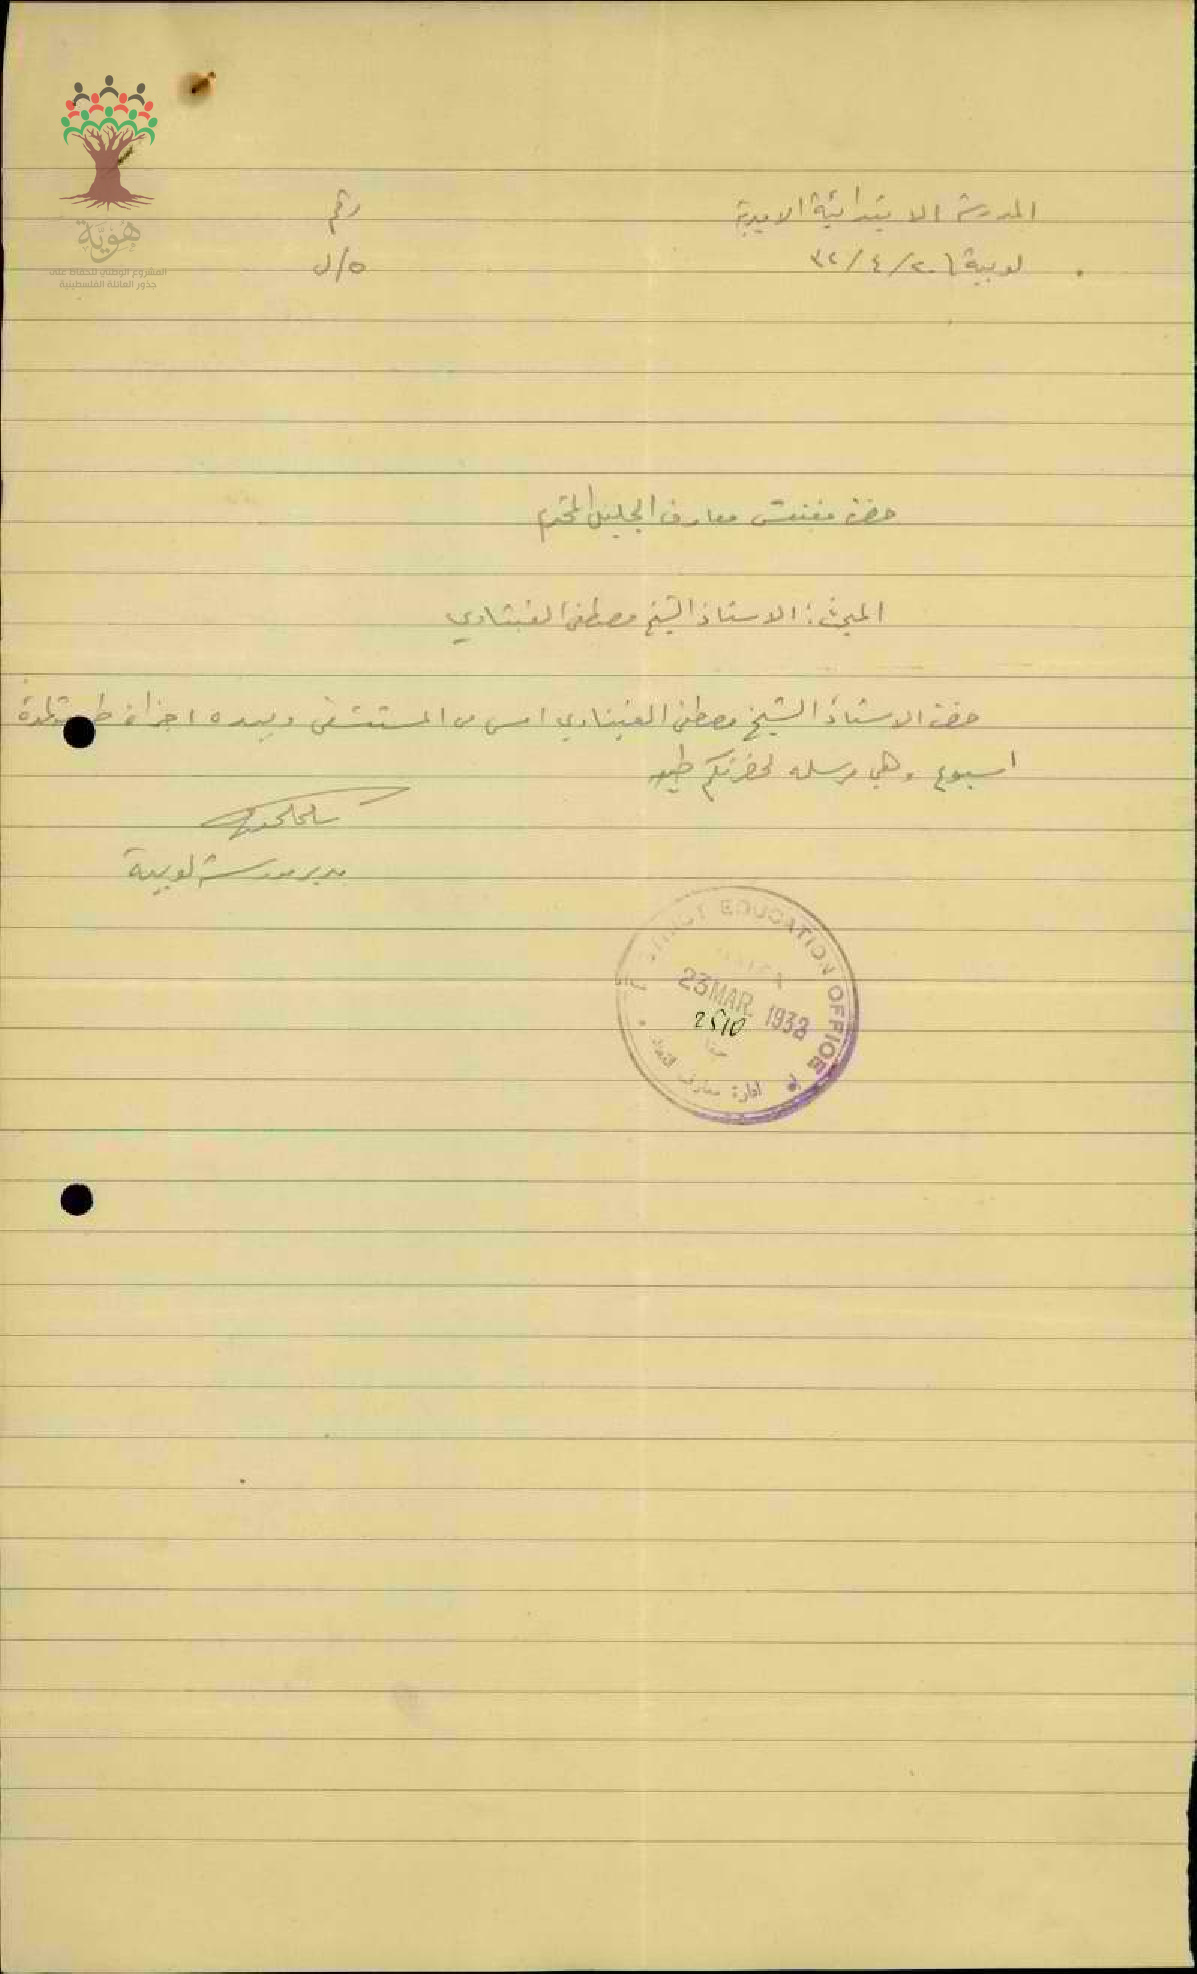 هُوِيَّة
المشروع الوطني للحفاظ على
جذور العائلة الفلسطينية
المدرسة الابتدائية الاميرية
رقم
لوبية ٢٠/٤/٣٢
٥/ل
حضرة مفتش معارف الجليل المحترم
المبحث: الاستاذ الشيخ مصطفى
حضر الاستاذ الشيخ مصطفى امس من المستشفى وبيده اجازة لمدة
اسبوع وهي مرسله لحضرتكم طيه
مدير مدرسة لوبية
DISTRICT EDUCATION OFFICE
23 MAR. 1932
2510
حيفا
ادارة معارف